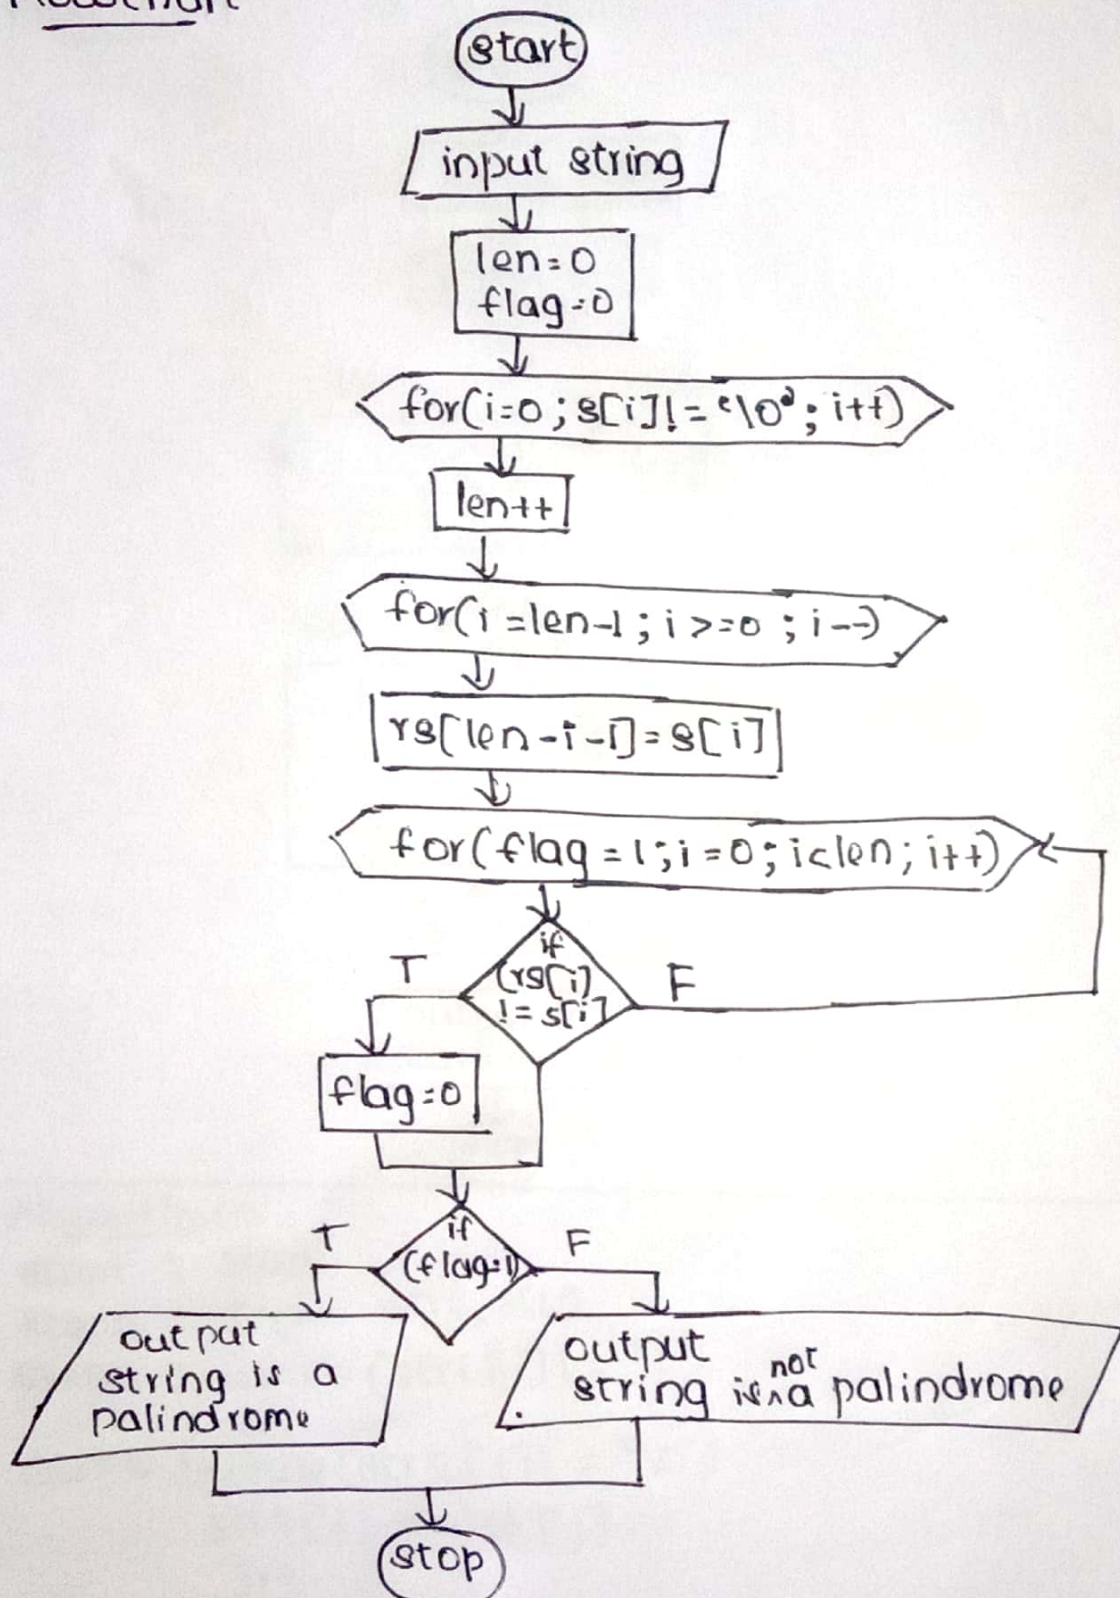 Flowchart
start
input string
len=0
flag=0
for(i=0;s[i]!='\0';i++)
len++
for(i=len-1;i>=0;i--)
rs[len-i-1]=s[i]
for(flag=1;i=0;i<len;i++)
if
(rs[i]
!=s[i]
T
F
flag=0
if
(flag=1)
T
F
output
string is a
palindrome
output
string is not a palindrome
stop